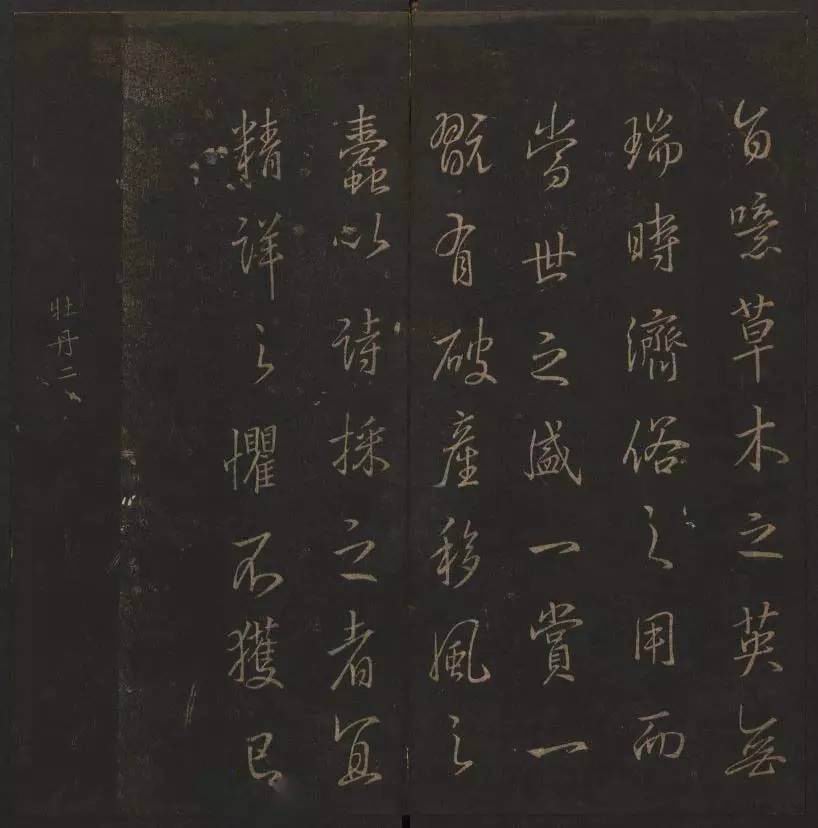 自噫草木之英無
瑞時濟俗之用而
當世之盛一賞一
翫有破產移風之
蠹以詩採之者宜
精詳之懼不獲已
牡丹二